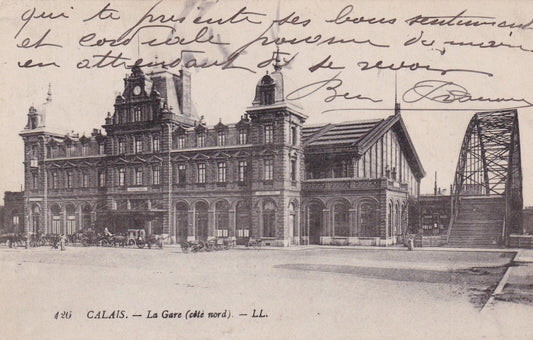 qui te présente ses bons sentiments
et cordiale poignée de main
en attendant de se revoir
Bien
126 CALAIS. - La Gare (côté nord). - LL.